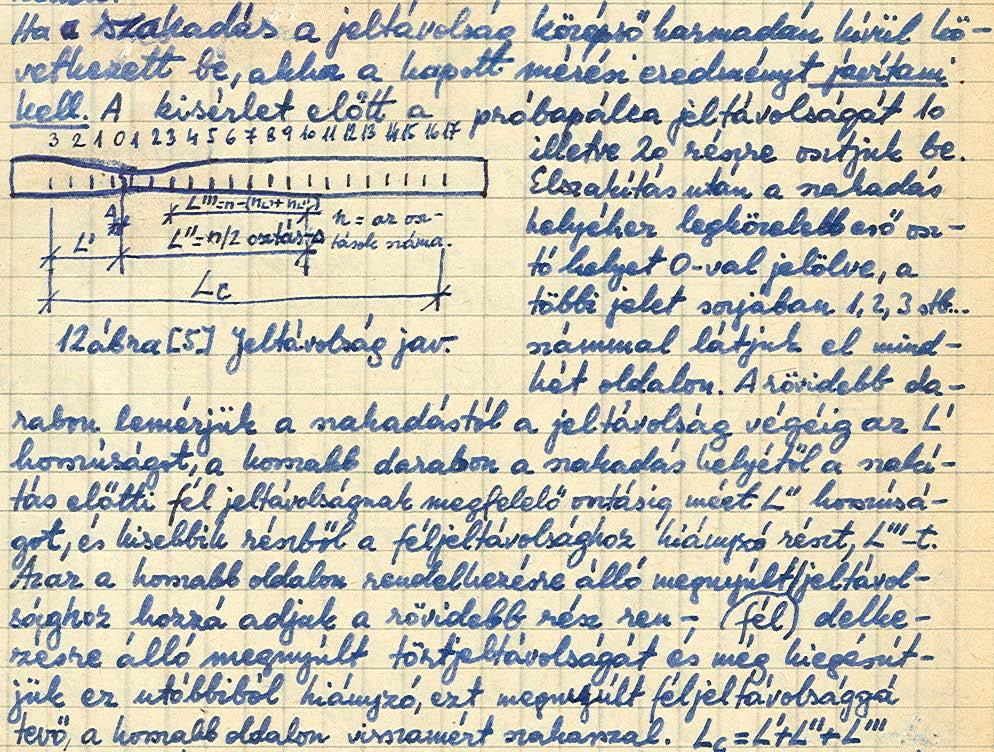 Ha a szakadás a jeltávolság középső harmadán kívül kö-
vetkezett be, akkor a kapott mérési eredményt javítani
kell. A kisérlet előtt a próbapálca jeltávolságát 10
illetve 20 részre osztjuk be.
Elszakítás után a szakadás
helyéhez legközelebb eső osz-
tó helyet 0-val jelölve, a
többi jelet sorjában 1, 2, 3 stb...
számmal látjuk el mind-
két oldalon. A rövidebb da-
3 2 1 0 1 2 3 4 5 6 7 8 9 10 11 12 13 14 15 16 17
L'''=n-(n
n = az osz-
tások száma.
L'
L''=n/2 osztás
Lc
12 ábra [5] Jeltávolság jav.
rabon lemérjük a szakadástól a jeltávolság végéig az L'
hosszúságot, a hosszabb darabon a szakadás helyétől a szakí-
tás előtti fél jeltávolságnak megfelelő osztásig mért L'' hosszúsá-
got, és kisebbik részből a féljeltávolsághoz hiányzó részt, L'''-t.
Azaz a hosszabb oldalon rendelkezésre álló megnyúlt jeltávol-
sághoz hozzá adjuk a rövidebb rész ren- (fél) delke-
zésre álló megnyúlt törtjeltávolságát és még kiegészít-
jük ez utóbbiból hiányzó, ezt megnyúlt féljeltávolsággá
tevő, a hosszabb oldalon visszamért szakasszal. Lc = L'+L''+L'''